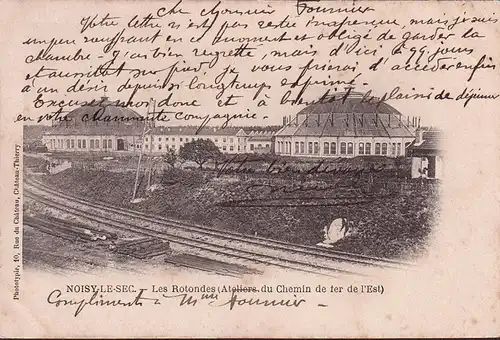 Cher Monsieur Fournier
Votre lettre n'est pas restée inaperçue, mais je suis
un peu souffrant en ce moment et obligé de garder la
chambre. J'ai bien regretté, mais d'ici qq. jours
et aussitôt sur pied, je vous prierai d'accéder enfin
à un désir depuis si longtemps exprimé.
Excusez-moi donc et à bientôt le plaisir de déjeuner
en votre charmante compagnie.
Votre bien dévoué
NOISY-LE-SEC. - Les Rotondes (Ateliers du Chemin de fer de l'Est)
Compliments à Mme Fournier
Phototypie, 10, Rue du Château, Château-Thierry